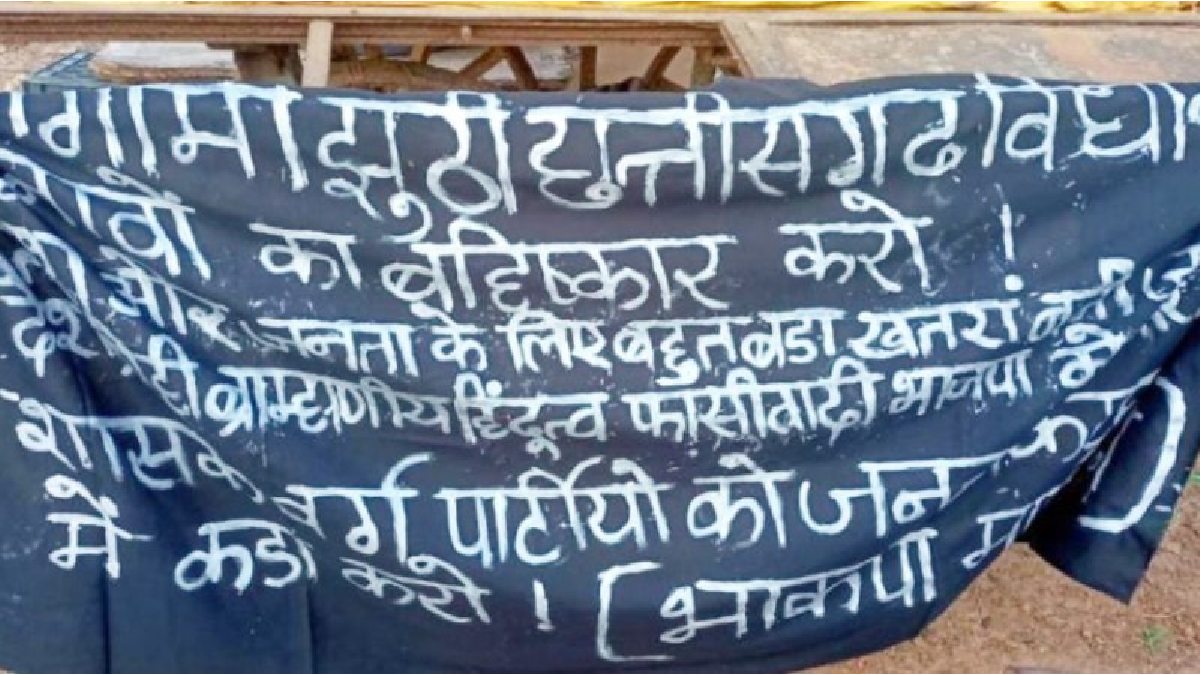 गामी झुठी छुत्तीसगढ विधा
वों का बहिष्कार करो !
और जनता के लिए बहुत बडा खतरा बनी
देश ब्राम्हाणीय हिंदूत्व फासीवादी भाजपा मे
शासक वर्ग पार्टीयो को जन
में कडा करो ! (भाकपा मा )